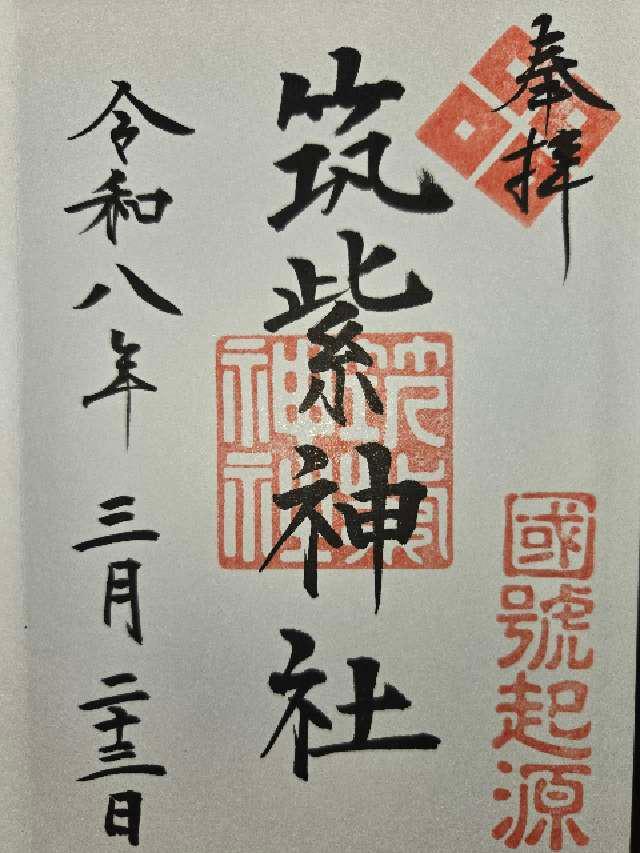 奉拝
國號起源
筑紫神社
筑紫神社
令和八年三月二十三日